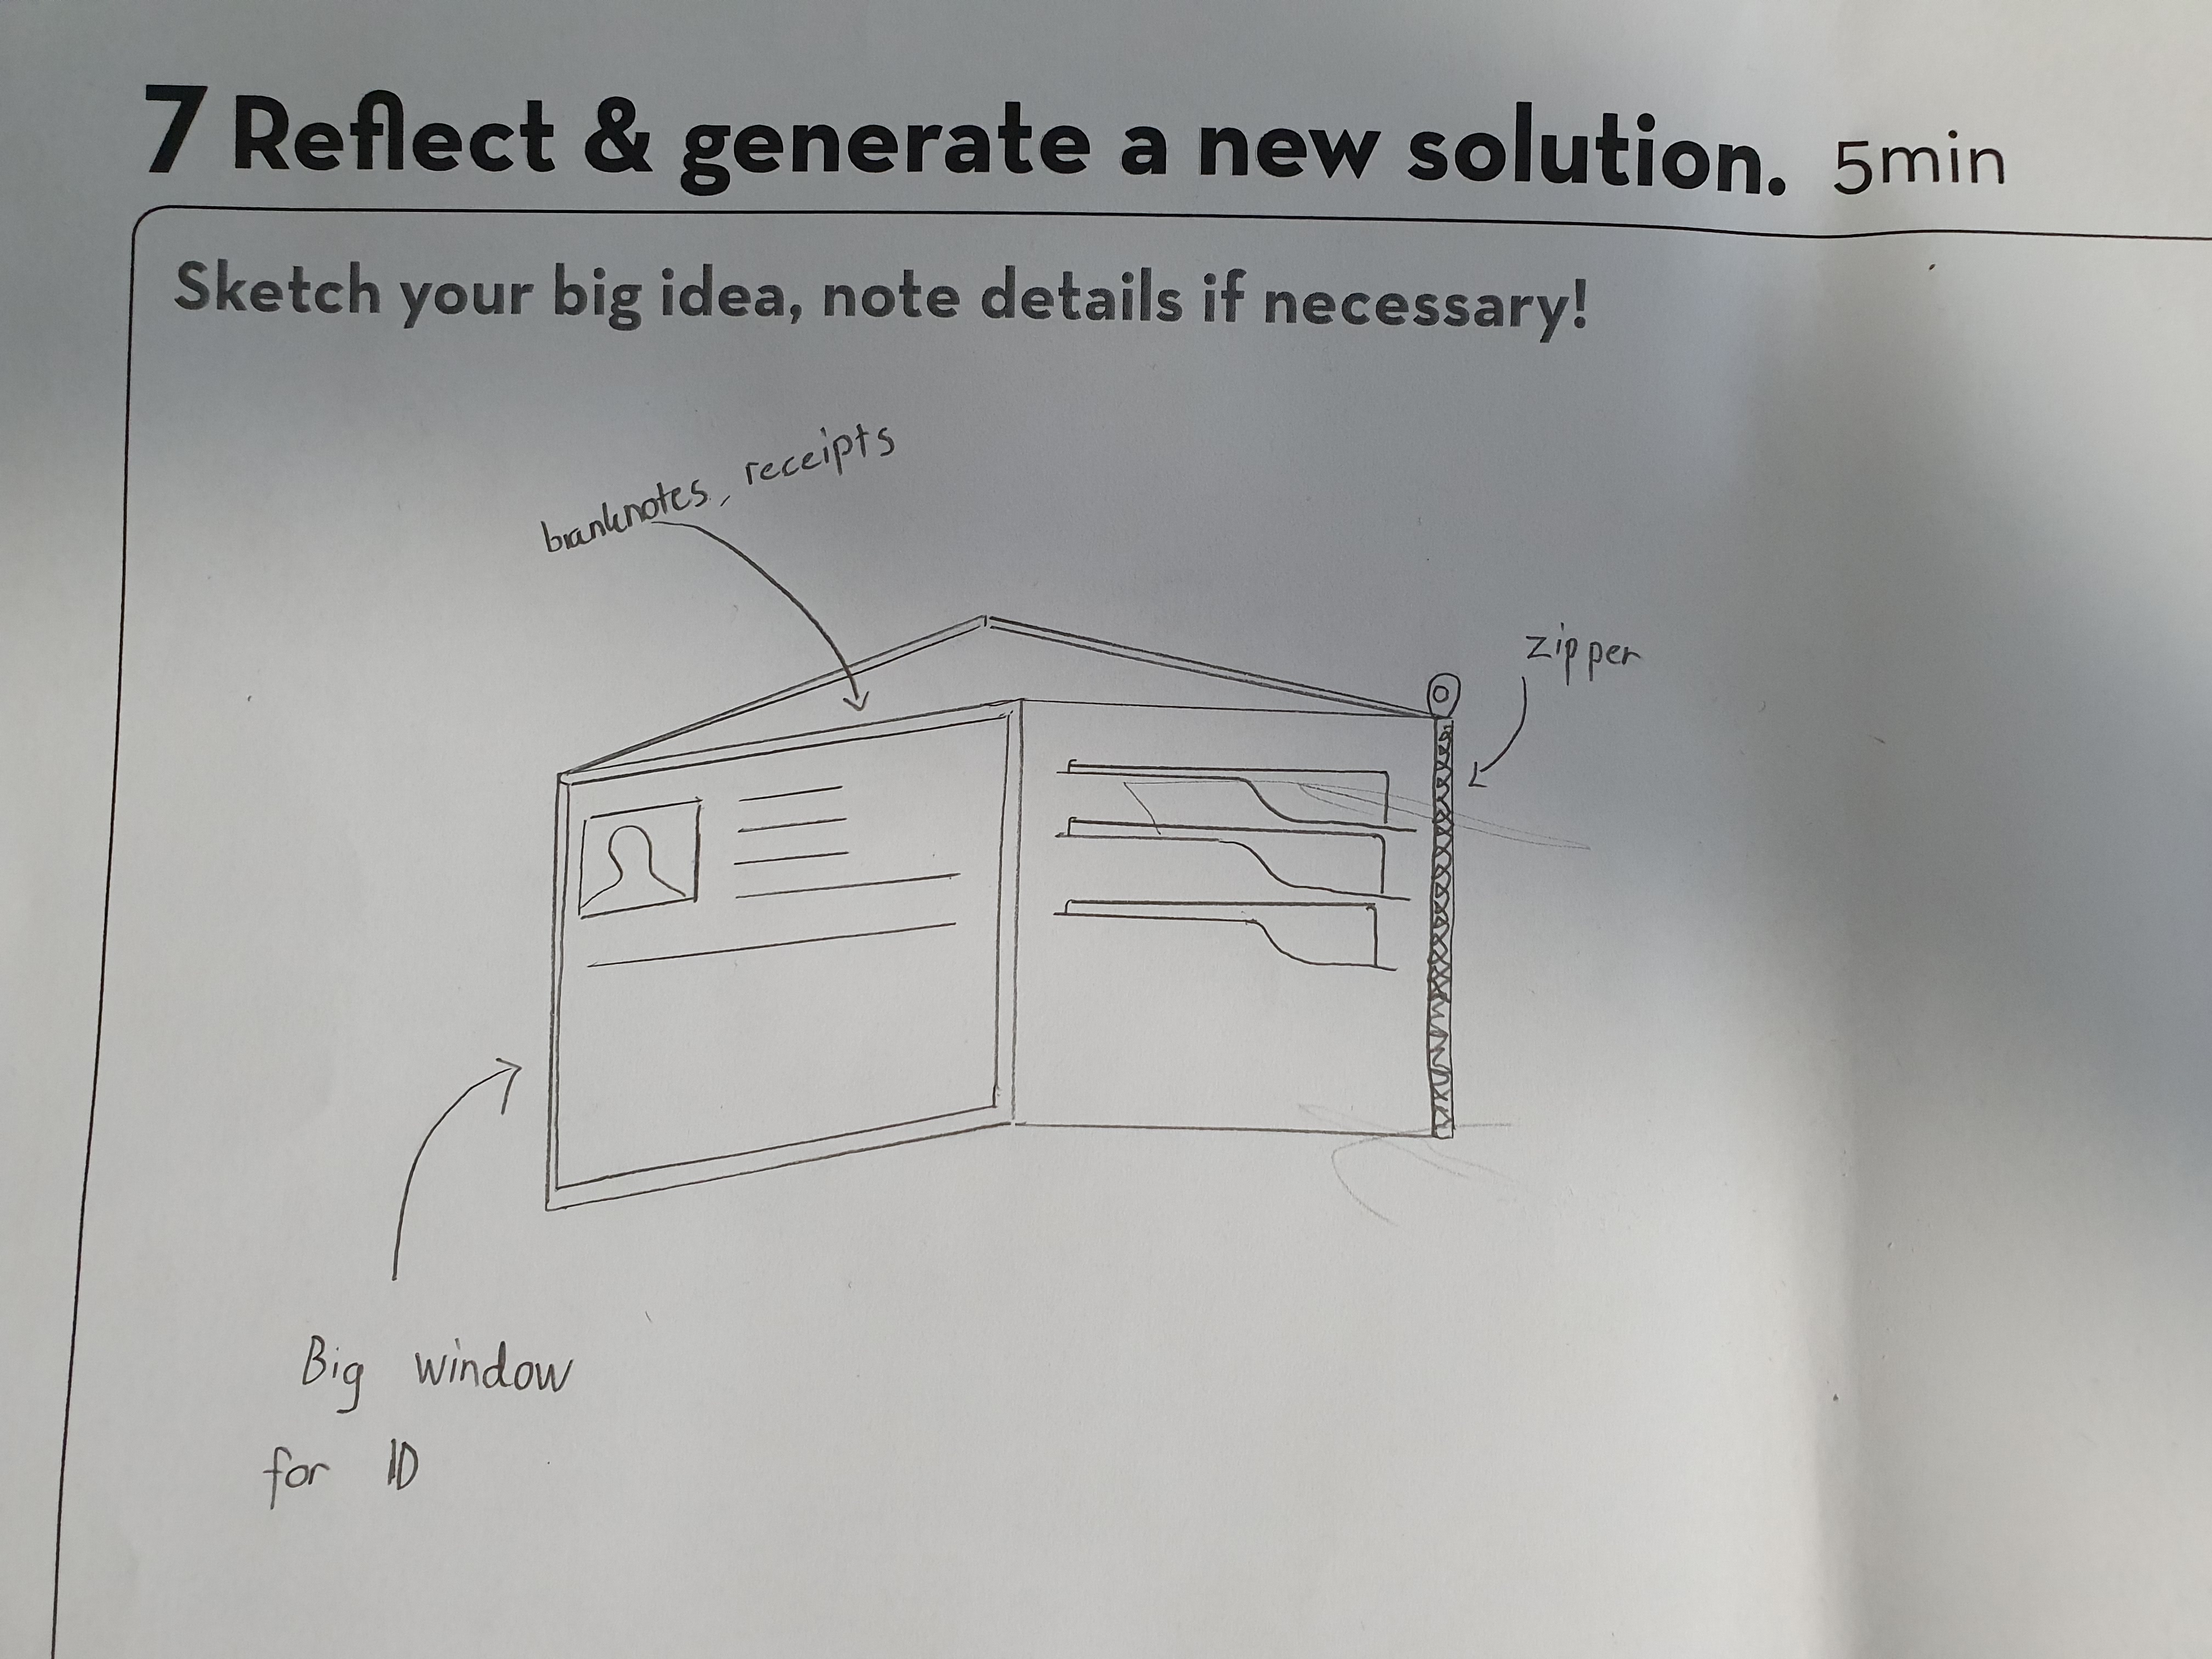 7 Reflect & generate a new solution. 5min
Sketch your big idea, note details if necessary!
banknotes, receipts
zipper
Big window
for ID